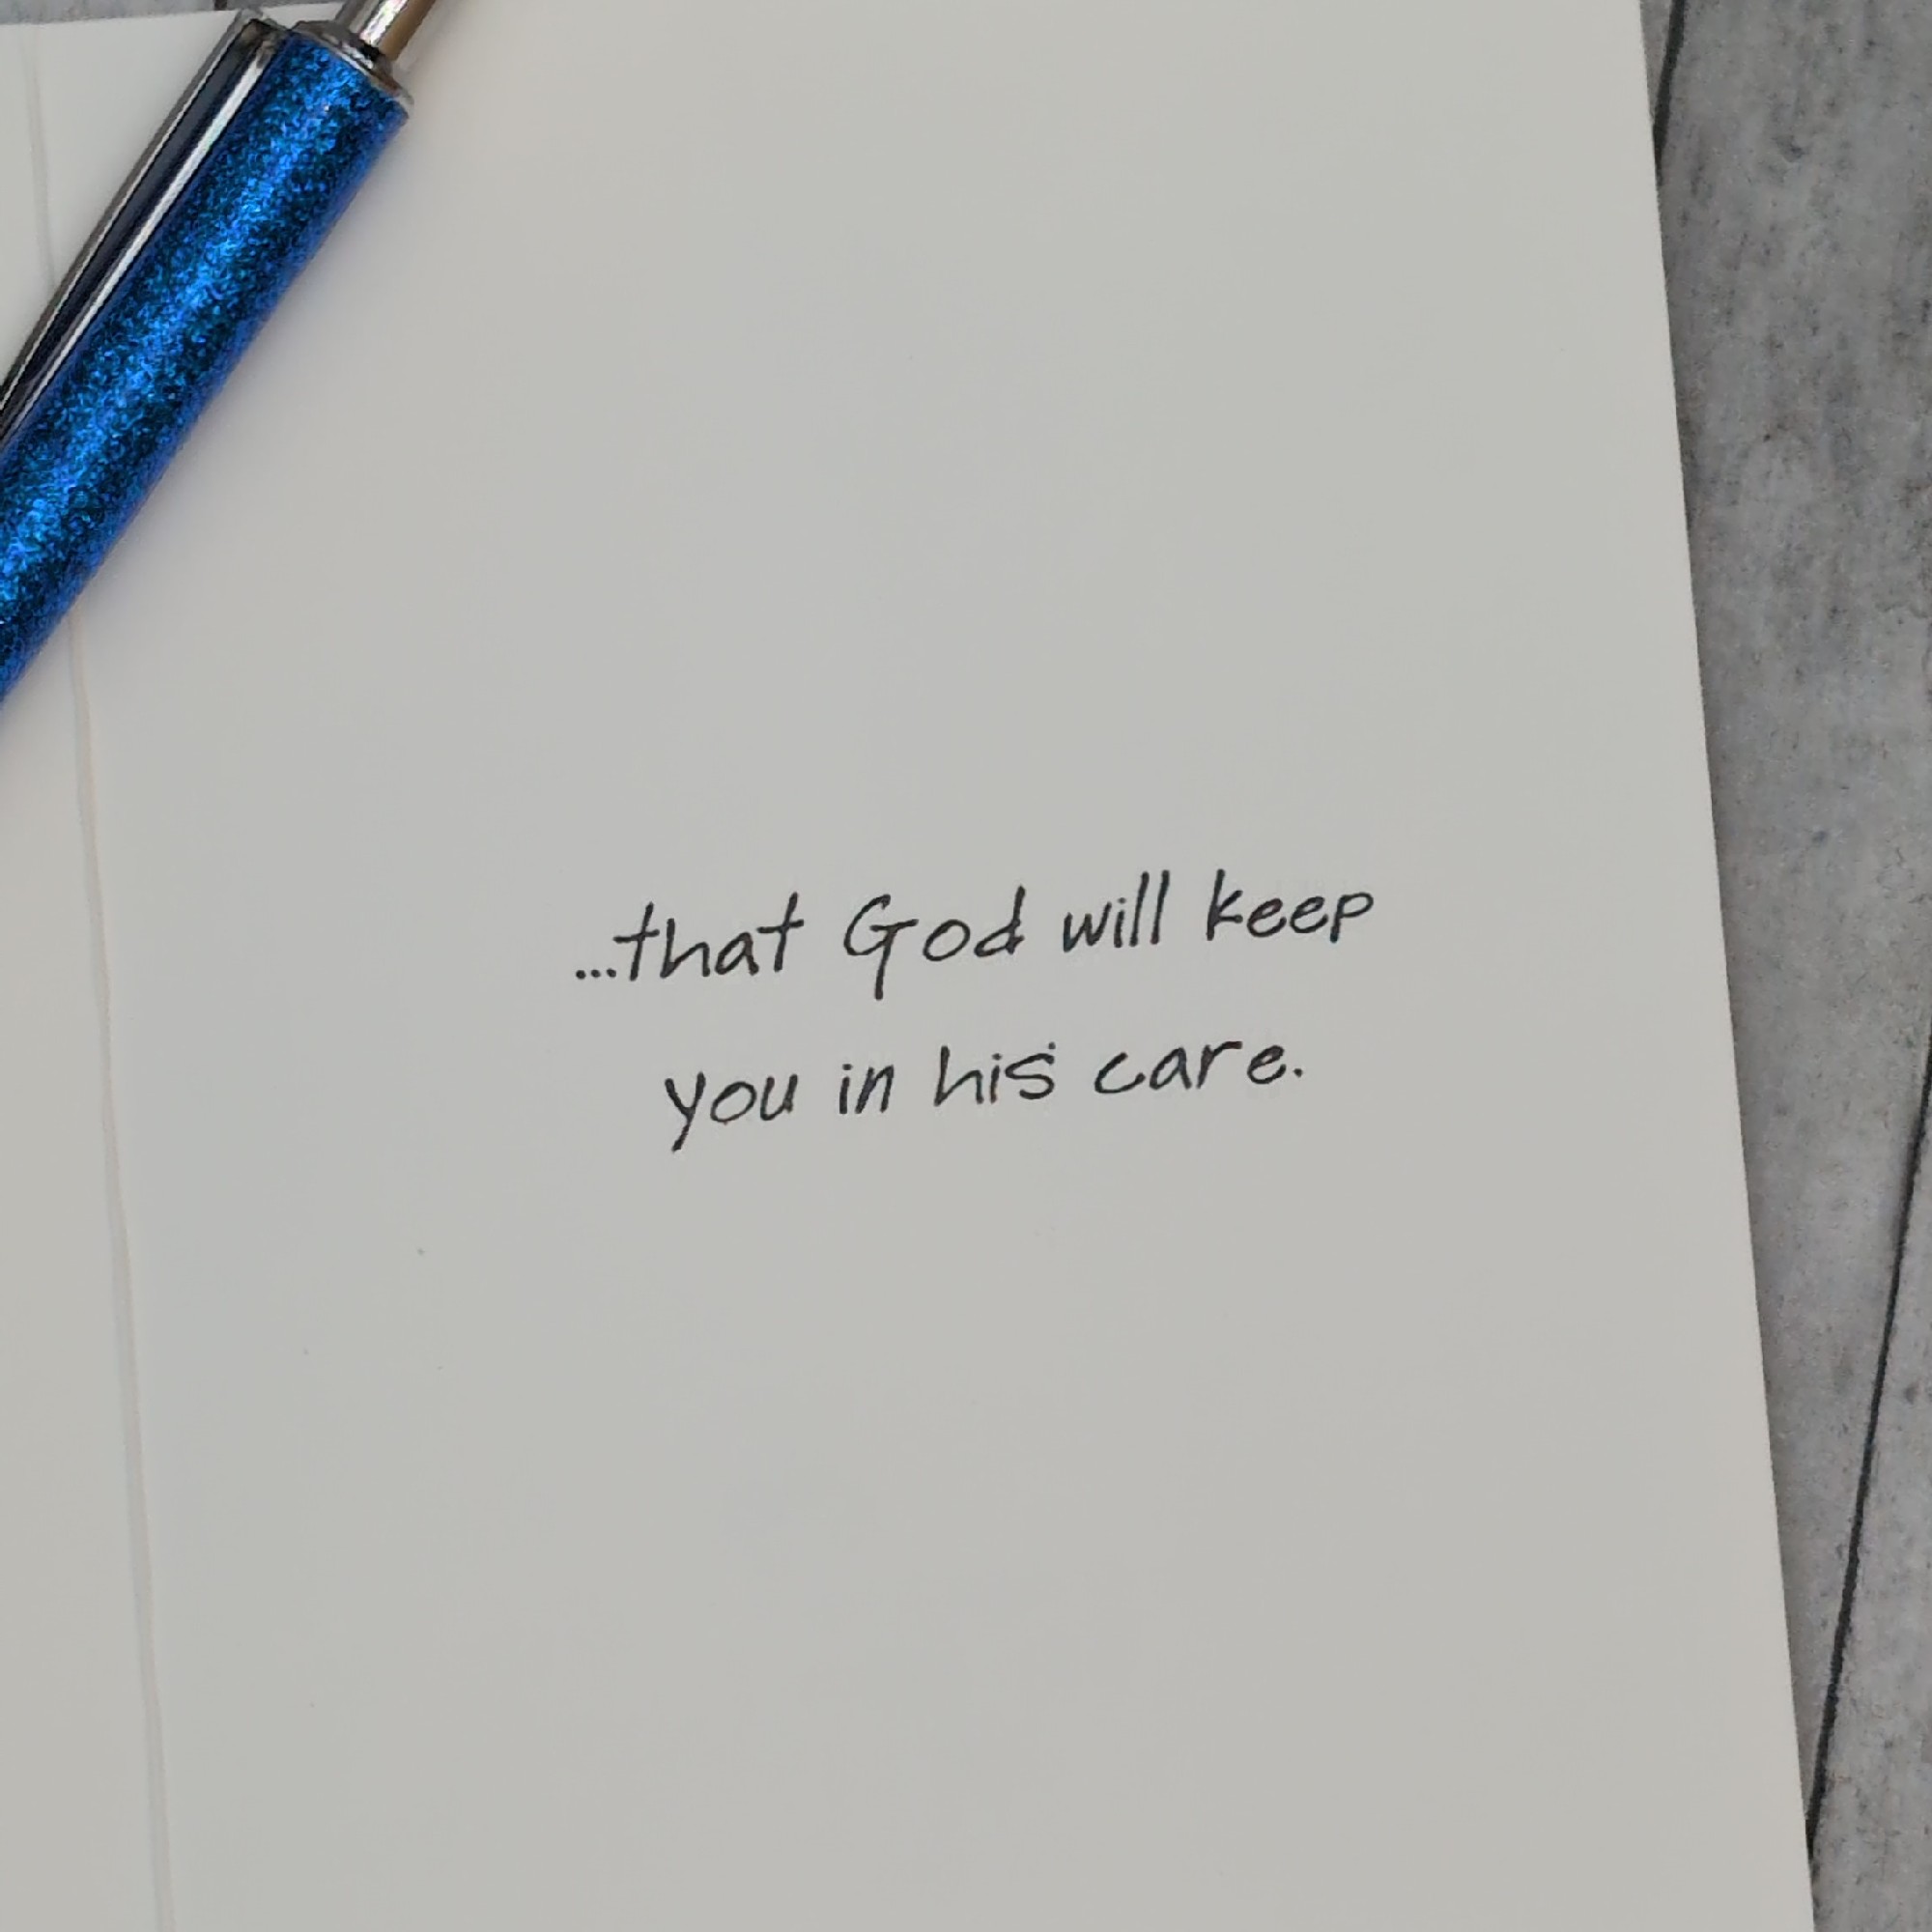 ...that God will keep
you in his care.